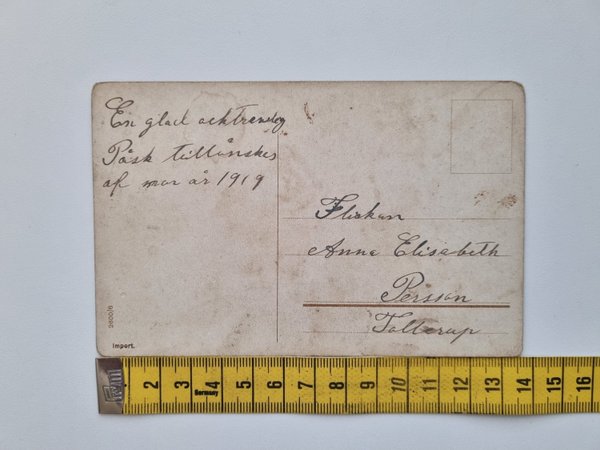 En glad och trevlig
Påsk tillönskes
af mor år 1919
Flickan
Anna Elisabeth
Persson
Tolterup
2600/6
Import.
2 3 4 5 6 7 8 9 10 11 12 13 14 15 16
Germany